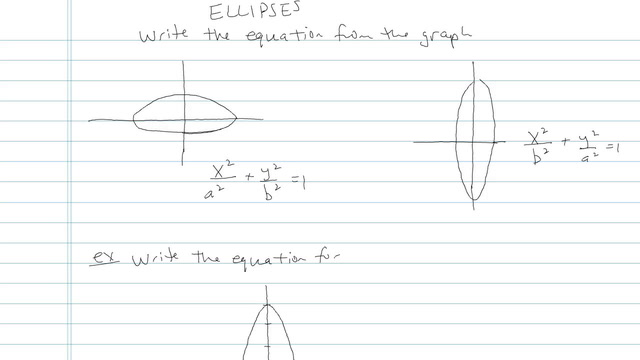 ELLIPSES
Write the equation from the graph
x²/a² + y²/b² = 1
x²/b² + y²/a² = 1
ex Write the equation for